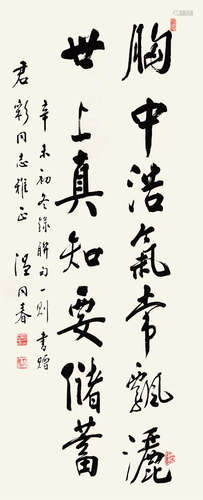 胸中浩氣常飄灑
世上真知要儲蓄
辛未初冬錄聯句一則書贈
君彩同志雅正
温同春